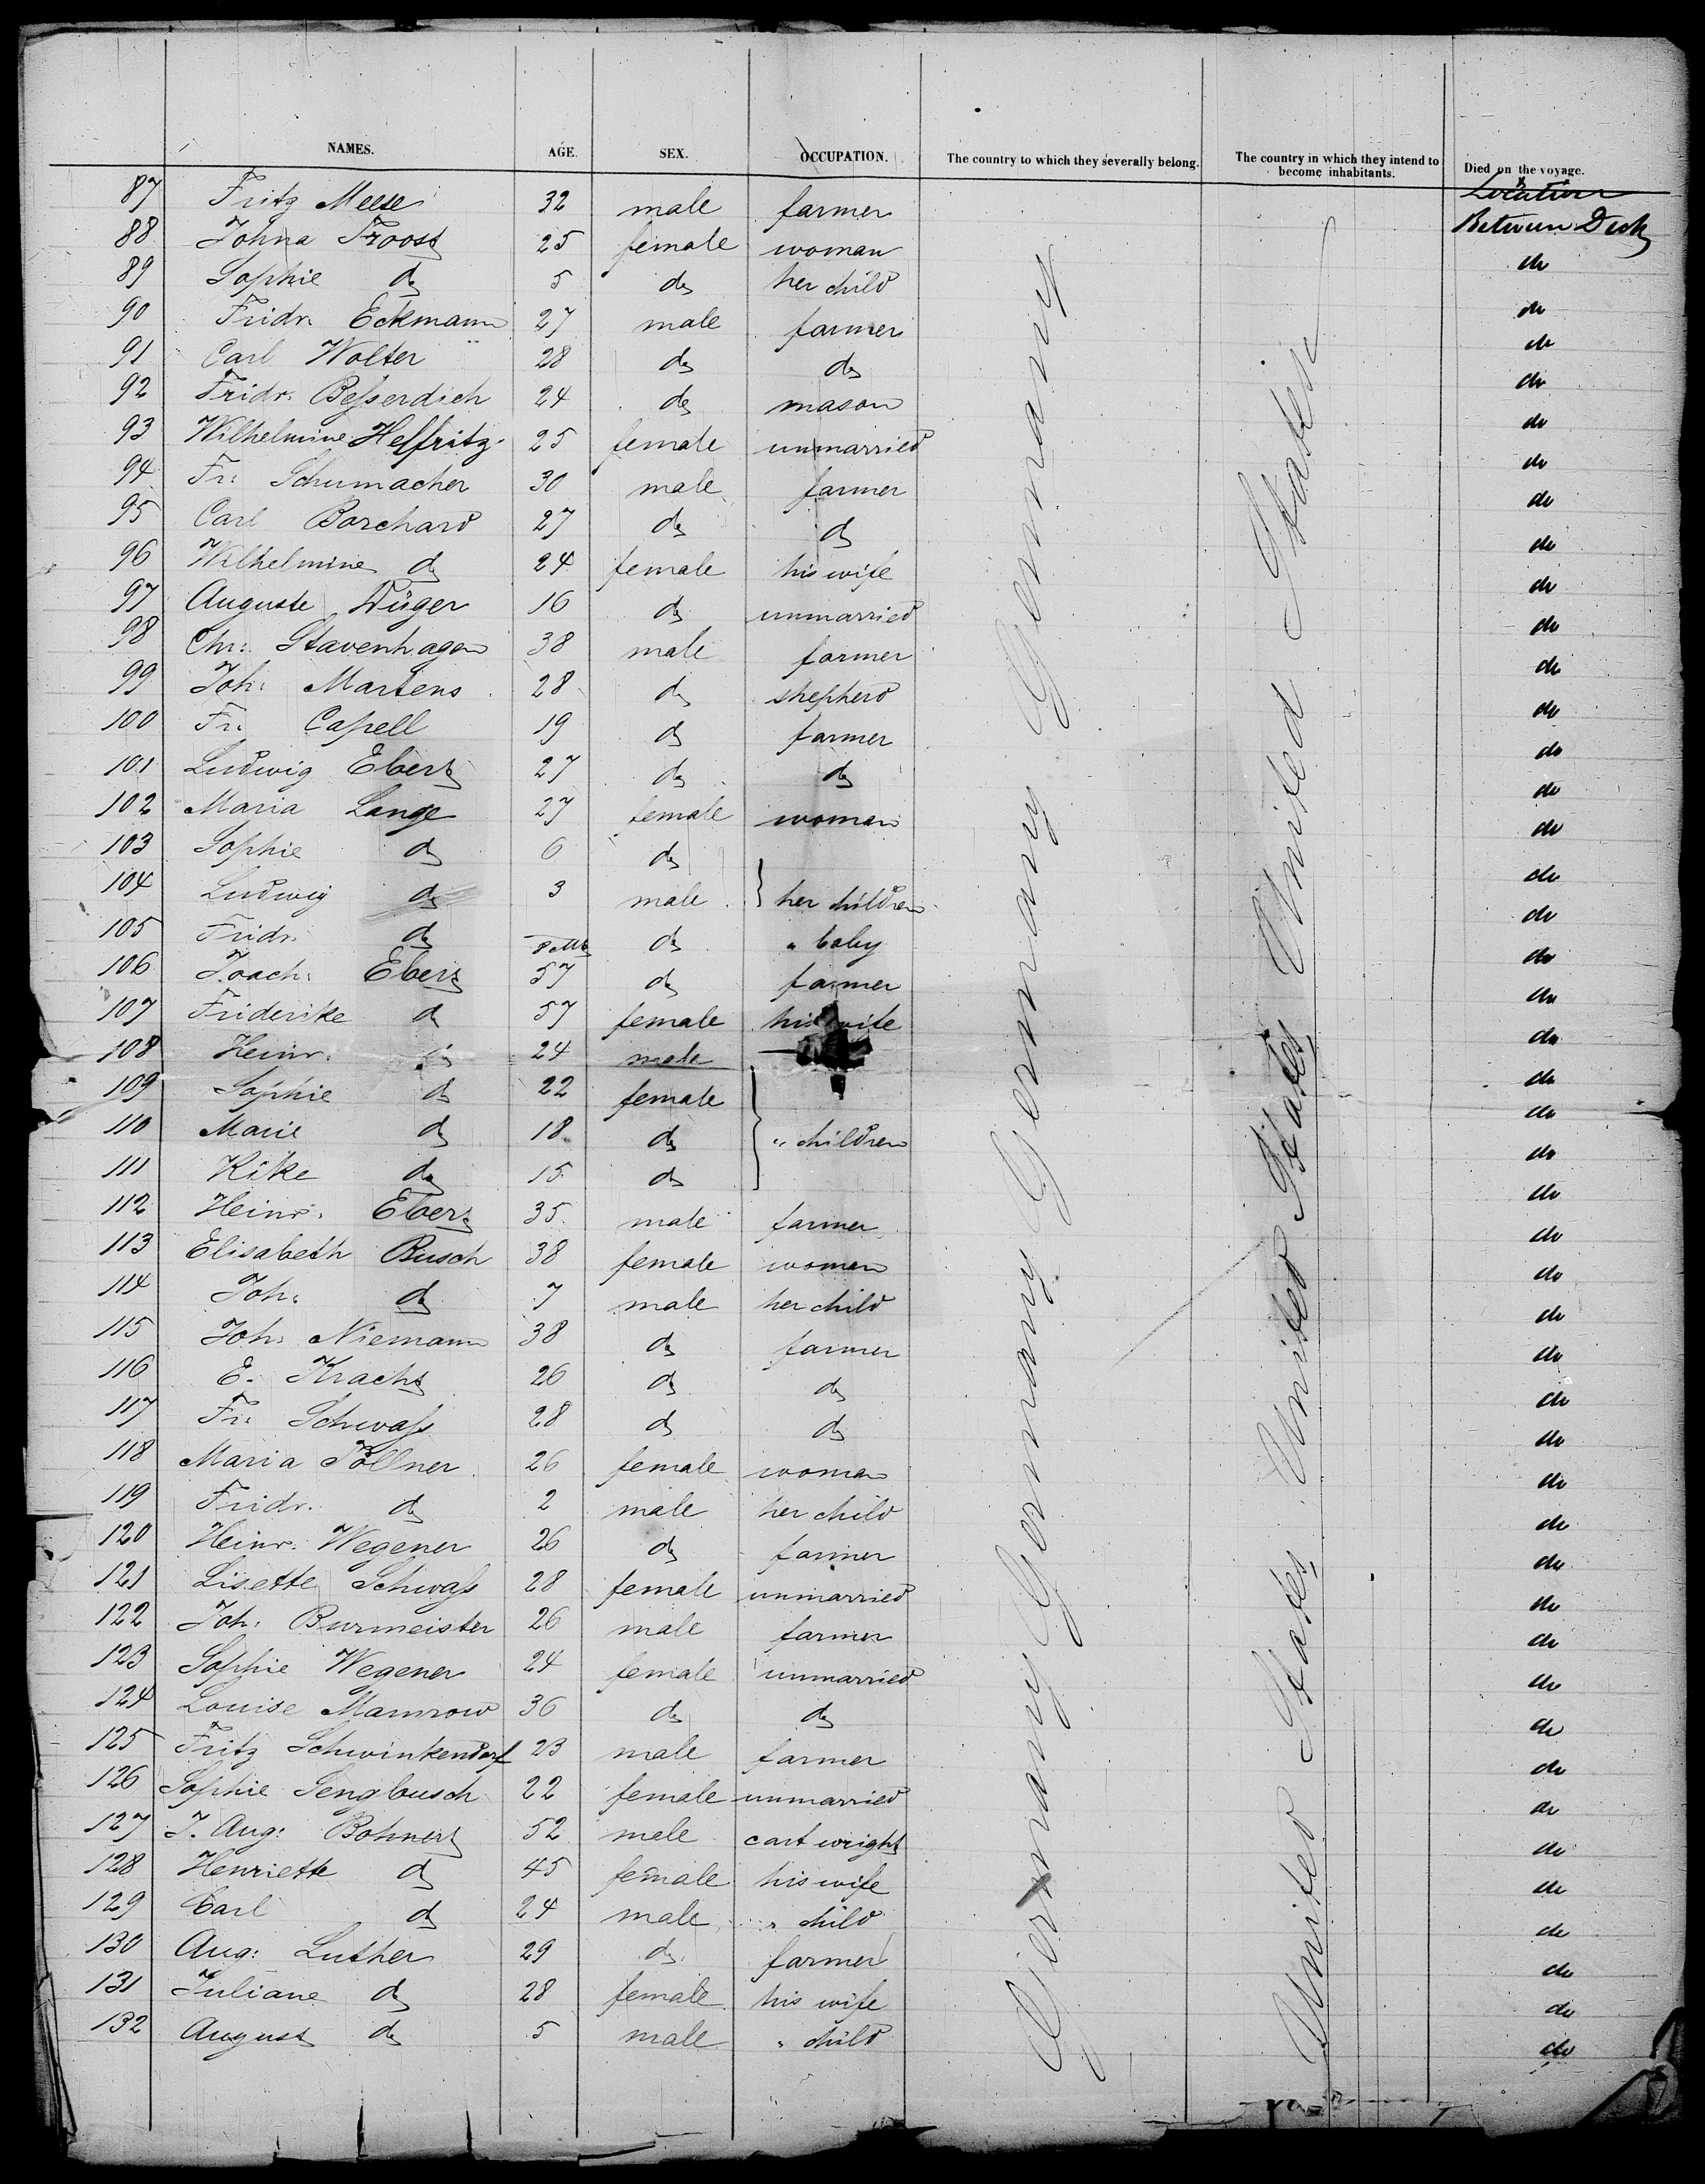 NAMES. AGE. SEX. OCCUPATION. The country to which they severally belong. The country in which they intend to become inhabitants. Died on the voyage.
Location
87 Fritz Meese 32 male farmer Between Deck
88 Johna Troost 25 female woman do
89 Sophie do 5 do her child do
90 Fridr. Eckmann 27 male farmer do
91 Carl Wolter 28 do do do
92 Fridr. Besserdich 24 do mason do
93 Wilhelmine Helfritz 25 female unmarried do
94 Fr: Schumacher 30 male farmer do
95 Carl Borchard 27 do do do
96 Wilhelmine do 24 female his wife do
97 Auguste Düger 16 do unmarried do
98 Chr: Stavenhagen 38 male farmer do
99 Joh: Martens 28 do shepherd do
100 Fr: Capell 19 do farmer do
101 Ludwig Ebert 27 do do do
102 Maria Lange 27 female woman do
103 Sophie do 6 do do
104 Ludwig do 3 male } her children do
105 Fridr. do do " baby do
106 Joach: Ebert 57 do farmer do
107 Friderike do 57 female his wife do
108 Heinr. do 24 male do
109 Sophie do 22 female do
110 Marie do 18 do } " children do
111 Rike do 15 do do
112 Heinr. Ebert 35 male farmer do
113 Elisabeth Busch 38 female woman do
114 Joh: do 7 male her child do
115 Joh: Niemann 38 do farmer do
116 E. Kracht 26 do do do
117 Fr: Schwass 28 do do do
118 Maria Töllner 26 female woman do
119 Fridr. do 2 male her child do
120 Heinr. Wegener 26 do farmer do
121 Lisette Schwass 28 female unmarried do
122 Joh: Burmeister 26 male farmer do
123 Sophie Wegener 24 female unmarried do
124 Louise Mamrow 36 do do do
125 Fritz Schwinkendorf 23 male farmer do
126 Sophie Sengbusch 22 female unmarried do
127 J. Aug: Bohnert 52 male cart wright do
128 Henriette do 45 female his wife do
129 Carl do 24 male " child do
130 Aug: Luther 29 do farmer do
131 Juliane do 28 female his wife do
132 August do 5 male " child do
Germany Germany Germany Germany Germany
United States United States United States